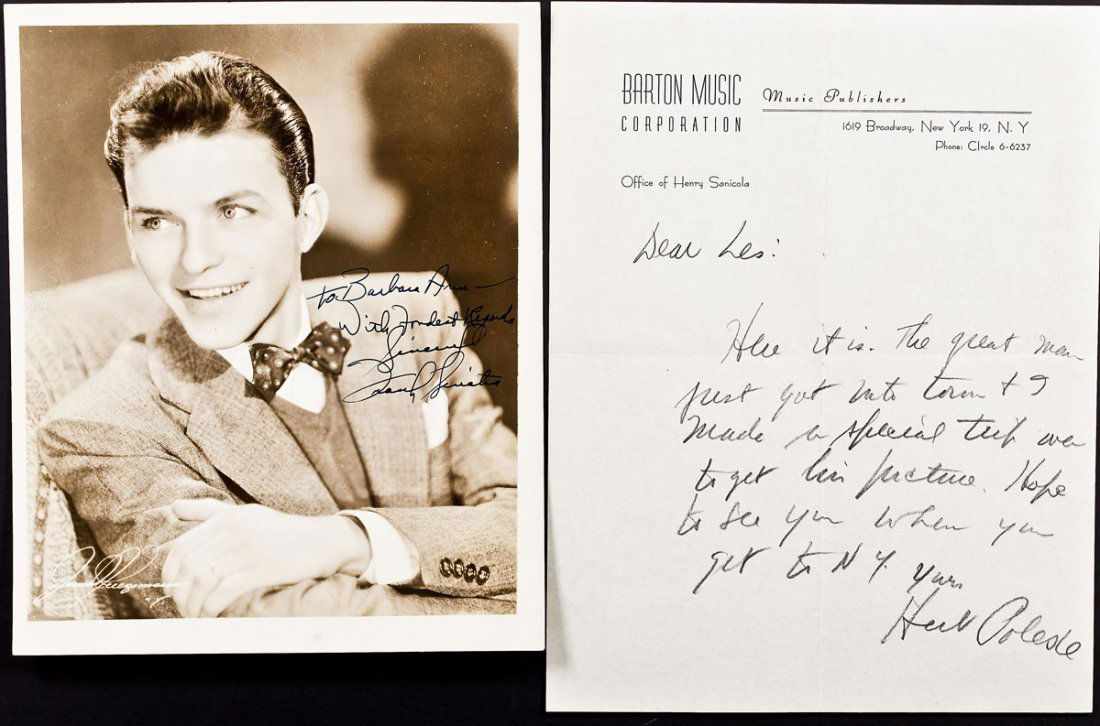 to Barbara Ann —
With Fondest Regards
Sincerely
Frank Sinatra
BARTON MUSIC
CORPORATION
Music Publishers
1619 Broadway, New York 19, N. Y
Phone: CIrcle 6-6237
Office of Henry Sanicola
Dear Les:
Here it is. The great man
just got into town & I
made a special trip over
to get his picture. Hope
to see you when you
get to N Y. Yours
Herb